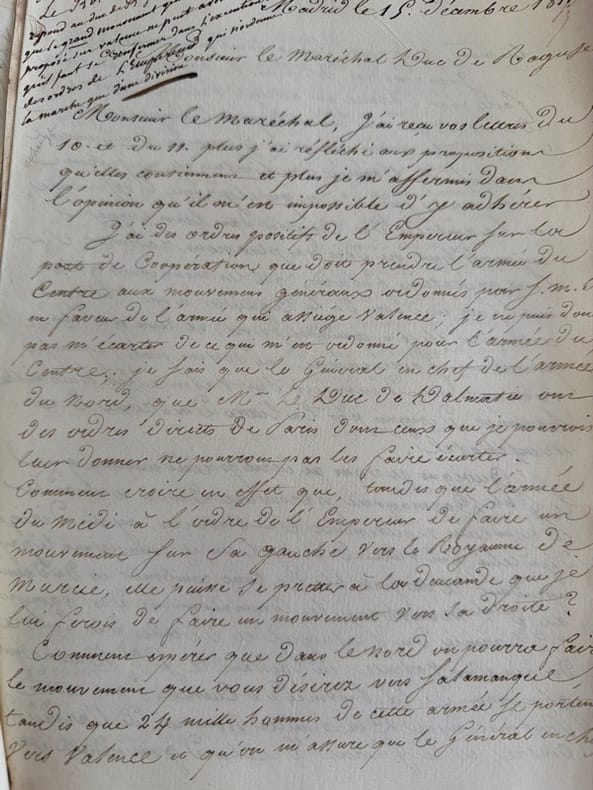 Madrid le 15. décembre 181
répond au duc de
que le grand mouvement que
proposé sur valence ne peut avoir
qu'il faut se conformer dans l'exécution
des ordres de L'Empereur qui n'ordonne
la marche que d'une division
Monsieur le Maréchal Duc de Raguse
Monsieur le Maréchal, J'ai reçu vos lettres du
10. et du 11. plus j'ai réfléchi aux propositions
qu'elles contiennent et plus je m'affermis dans
l'opinion qu'il m'est impossible d'y adhérer
J'ai des ordres positifs de l'Empereur sur la
part de Coopération que doit prendre l'armée du
Centre aux mouvemens généraux ordonnés par S. M.
en faveur de l'armée qui assiège Valence; je ne puis don
pas m'écarter de ce qui m'est ordonné pour l'armée du
Centre; je sais que le Général en chef de l'armée
du Nord, que Mr Le Duc de Dalmatie ont
des ordres directs de Paris dont ceux que je pourrois
leur donner ne pourront pas les faire écarter.
Comment croire en effet que, tandis que l'armée
du Midi à l'ordre de l'Empereur de faire un
mouvement sur sa gauche vers le Royaume de
Murcie, elle puisse se prêter à la demande que je
lui ferois de faire un mouvement vers sa droite?
Comment espérer que dans le Nord on pourra fair
le mouvement que vous désirez vers Salamanque,
tandis que 24 mille hommes de cette armée se porten
vers Valence et qu'on m'assure que le Général en che